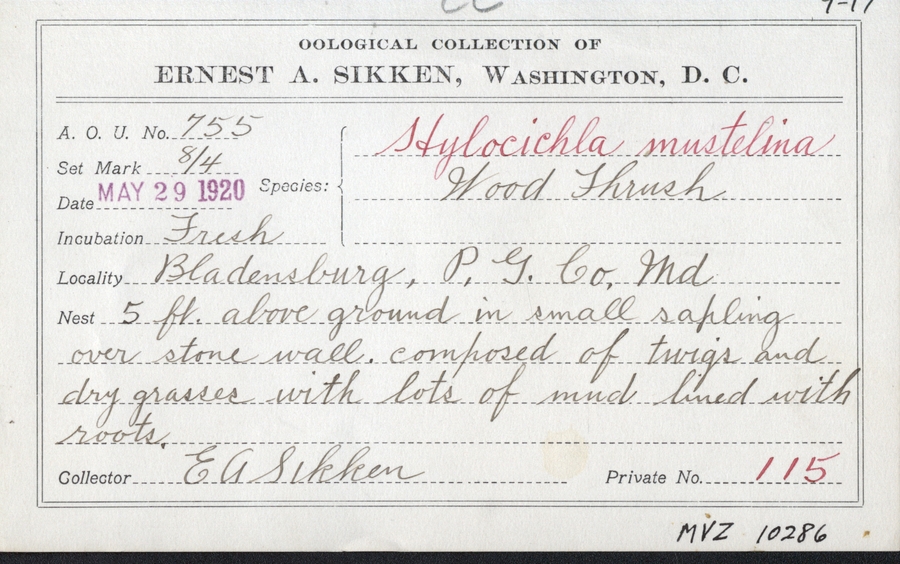 9-17
OOLOGICAL COLLECTION OF
ERNEST A. SIKKEN, WASHINGTON, D. C.
A. O. U. No. 755
Set Mark 8/4
Date MAY 29 1920
Incubation Fresh
Species: Hylocichla mustelina
Wood Thrush
Locality Bladensburg, P. G. Co. Md
Nest 5 ft. above ground in small sapling
over stone wall. composed of twigs and
dry grasses with lots of mud lined with
roots.
Collector E A Sikken Private No. 115
MVZ 10286